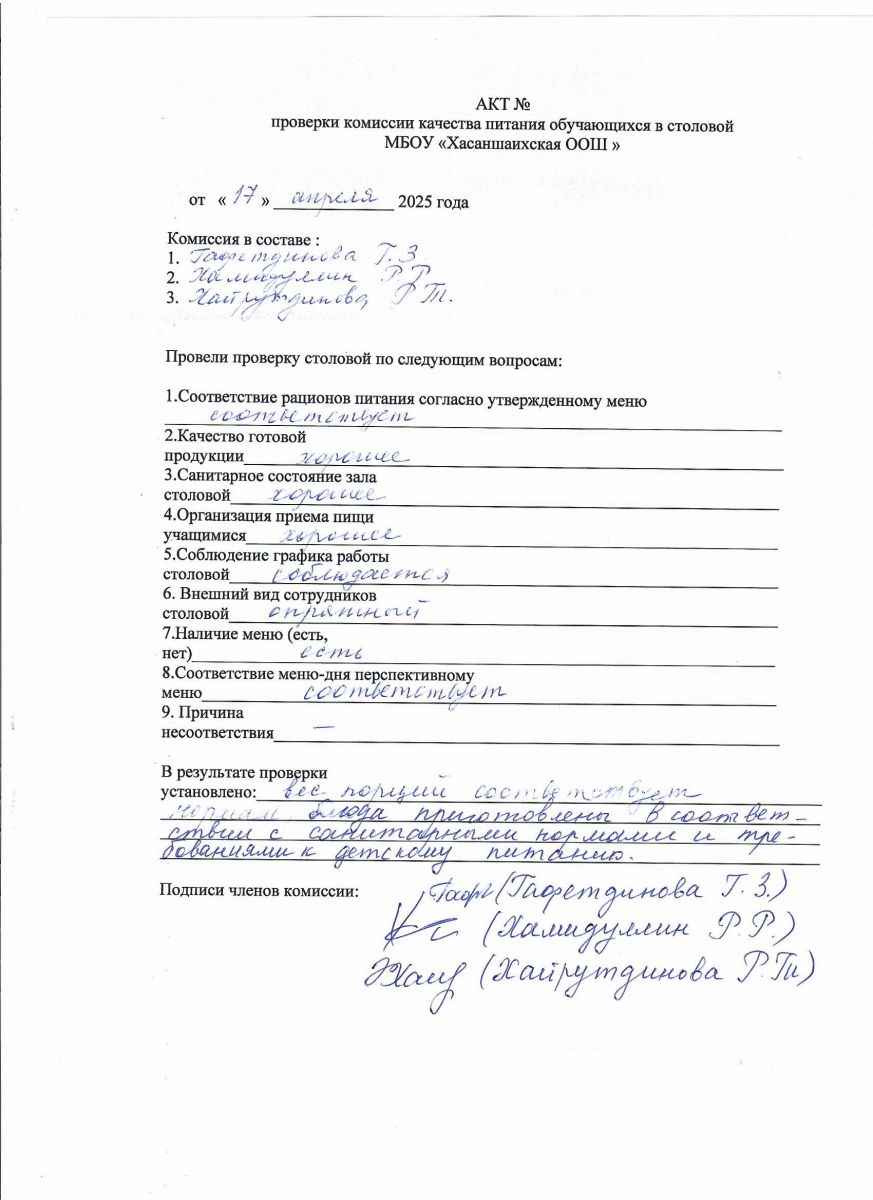 АКТ №
проверки комиссии качества питания обучающихся в столовой
МБОУ «Хасаншаихская ООШ »
от « 17 » апреля 2025 года
Комиссия в составе :
1. Гафетдинова Г. З.
2. Хамидуллин Р Р
3. Хайрутдинова Р Т.
Провели проверку столовой по следующим вопросам:
1.Соответствие рационов питания согласно утвержденному меню
соответствует
2.Качество готовой
продукции хорошее
3.Санитарное состояние зала
столовой хорошее
4.Организация приема пищи
учащимися хорошее
5.Соблюдение графика работы
столовой соблюдается
6. Внешний вид сотрудников
столовой опрятный
7.Наличие меню (есть,
нет) есть
8.Соответствие меню-дня перспективному
меню соответствует
9. Причина
несоответствия —
В результате проверки
установлено: вес порций соответствует
нормам, блюда приготовлены в соответ-
ствии с санитарными нормами и тре-
бованиями к детскому питанию.
Подписи членов комиссии: (Гафетдинова Г. З.)
(Хамидуллин Р. Р.)
(Хайрутдинова Р. Т.)